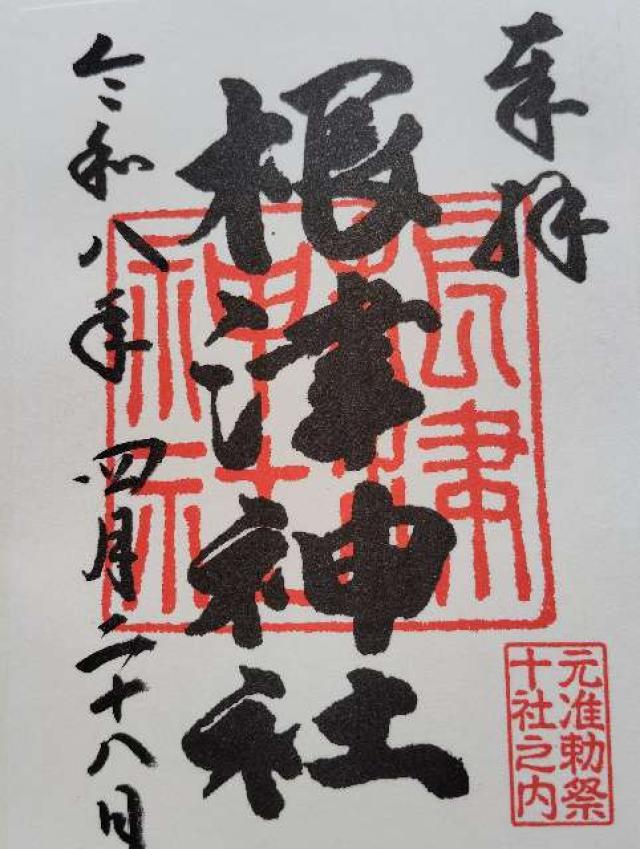 奉拝
根津神社
令和八年 四月二十八日
根津
神社
元准勅祭
十社之内